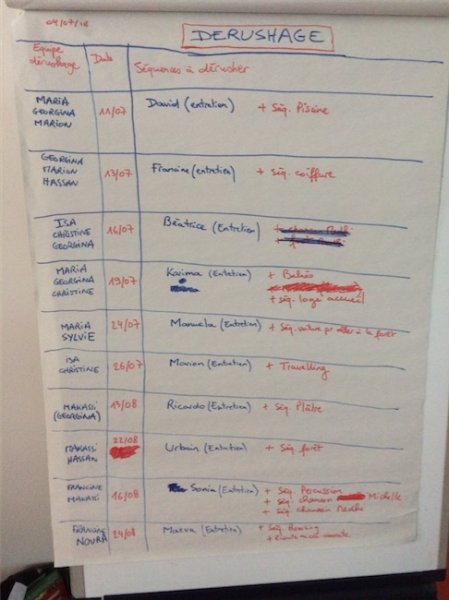 04/07/18
DERUSHAGE
Equipe dérushage Date Séquences à dérusher
MARIA
GEORGINA 11/07 David (entretien) + Séq. Piscine
MARION
GEORGINA
MARION 13/07 Francine (entretien) + séq. coiffure
HASSAN
ISA
CHRISTINE 16/07 Béatrice (Entretien)
GEORGINA
MARIA
GEORGINA 19/07 Karima (Entretien) + Bahéo
CHRISTINE + séq. loge accueil
MARIA 24/07 Manuela (Entretien) + Séq. voiture pr aller à la forêt
SYLVIE
ISA 26/07 Marion (Entretien) + Travelling
CHRISTINE
MAKASSI 13/08 Ricardo (Entretien) + Séq. Plâtre
(GEORGINA)
MAKASSI 22/08 Urbain (Entretien) + Séq. forêt
HASSAN
FRANCINE 16/08 Sonia (Entretien) + Séq. Percussion
MAKASSI + séq. chanson Michelle
+ séq. chanson
FRANCINE 24/08 Maeva (Entretien) + Séq.
NOURA